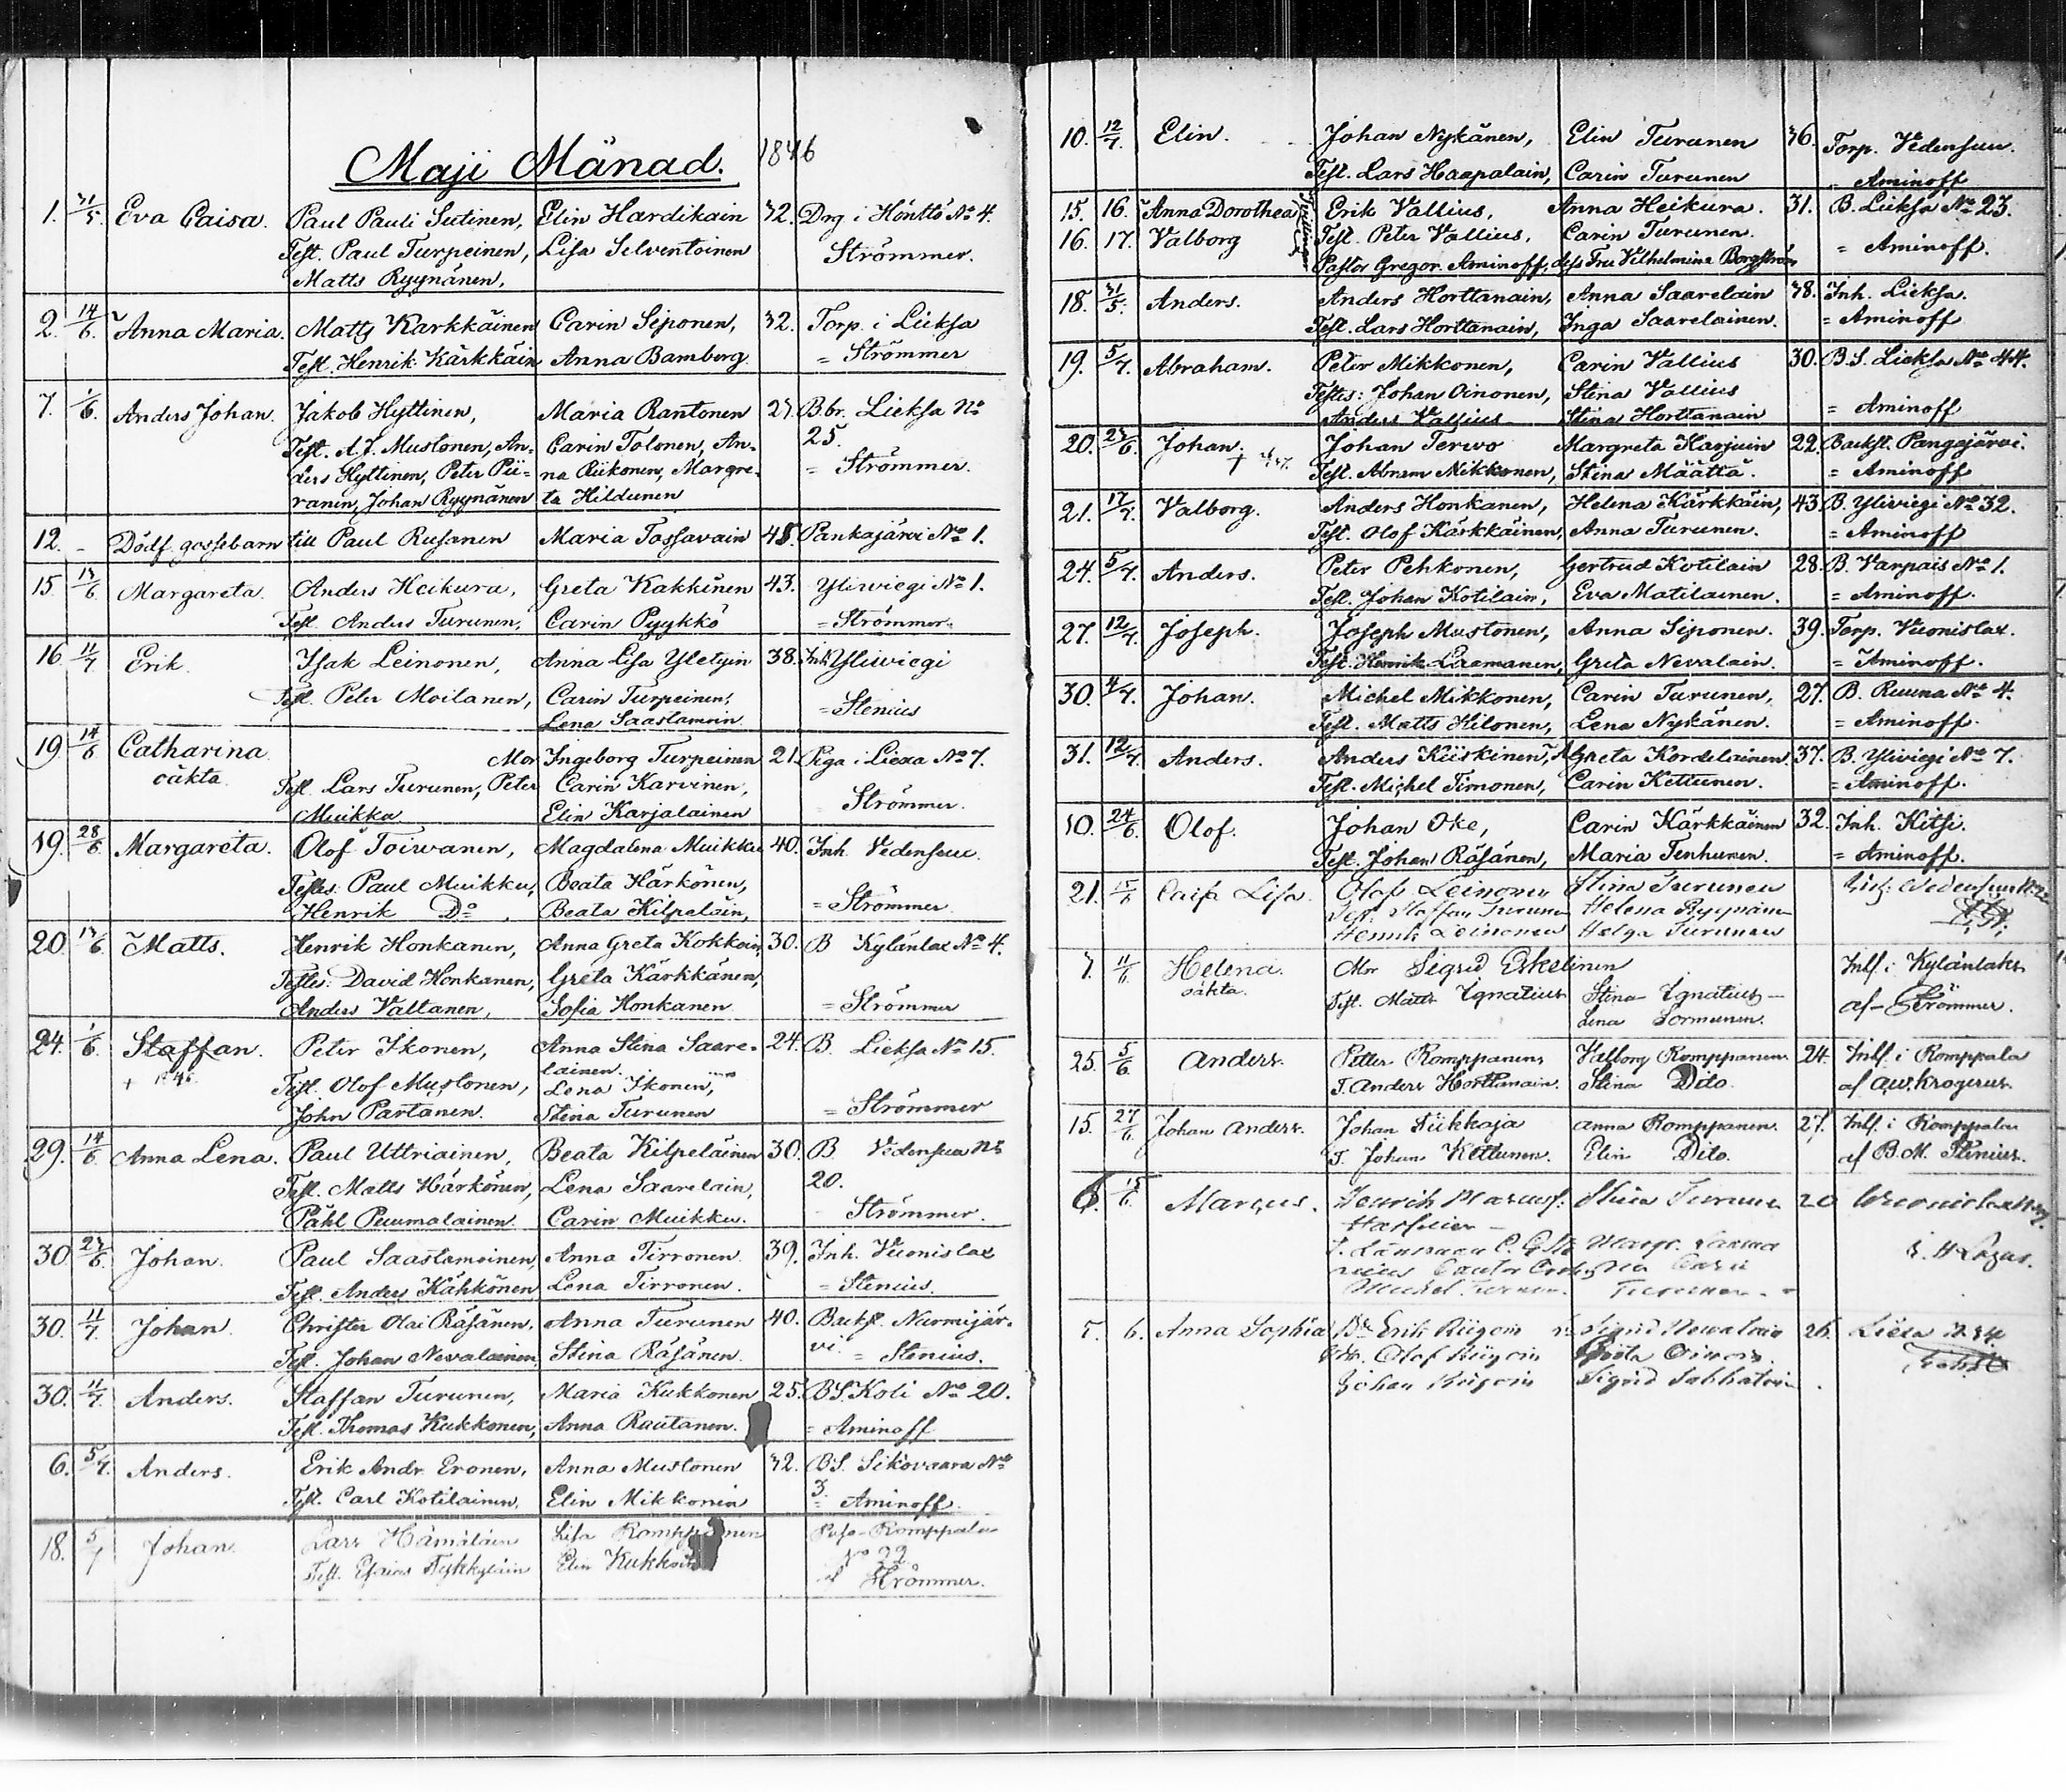 Maji Månad. 1846
1. 31/5. Eva Caisa. Paul Pauli Sutinen, Elin Hardikain 32. Drg i Hönttö No 4.
Test. Paul Turpeinen, Lisa Silventoinen Strömmer.
Matts Ryynänen,
2. 14/6. Anna Maria. Matts Karkkäinen Carin Siponen, 32. Torp. i Lieksa
Test. Henrik Kärkkäin Anna Bamberg = Strömmer
7. 1/6. Anders Johan. Jakob Hyttinen, Maria Rantonen 27. B.br. Lieksa No
Test. A. J. Mustonen, An- Carin Tolonen, An- 25.
ders Hyttinen, Peter Pii- na Riikonen, Margre- = Strömmer.
ranen, Johan Ryynänen ta Hildunen
12. - Dödf. gossebarn till Paul Rusanen Maria Tossavain 48. Pankajärvi No 1.
15 13/6 Margareta. Anders Heikura, Greta Kakkinen 43. Yliwiegi No 1.
Test. Anders Turunen, Carin Pyykkö = Strömmer.
16 11/7 Erik. Isak Leinonen, Anna Lisa Yletyin 38. Inh Yliwiegi
Test. Peter Moilanen, Carin Turpeinen, = Stenius
Lena Saastamoin
19 14/6 Catharina Mor Ingeborg Turpeinen 21. Piga i Liexa No 7.
oäkta. Test. Lars Turunen, Peter Carin Karvinen, Strömmer.
Muikka Elin Karjalainen
19. 28/6 Margareta. Olof Toiwanen, Magdalena Muikku 40. Inh. Vedensuu.
Testes: Paul Muikku, Beata Härkönen,
Henrik Do. Beata Kilpeläin, = Strömmer
20 13/6 Matts. Henrik Honkanen, Anna Greta Kokkoin, 30. B Kylänlax No 4.
Testes: David Honkanen, Greta Kärkkänen,
Anders Valtanen, Sofia Honkanen = Strömmer
24. 1/6. Staffan. Peter Ikonen, Anna Stina Saare- 24. B. Lieksa No 15.
lainen.
Test. Olof Mustonen, Lena Ikonen,
John Partanen. Stina Turunen = Strömmer
29. 14/6 Anna Lena. Paul Uttriainen, Beata Kilpeläinen 30. B. Vedensuu No
Test. Matts Härkönen, Lena Saarelain, 20.
Påhl Puumalainen Carin Muikku. Strömmer.
30 27/6 Johan. Paul Saastamoinen, Anna Tirronen. 39. Inh. Vuonislax
Test. Anders Kähkönen Lena Tirronen. = Stenius.
30. 11/7 Johan. Christer Olai Räsänen, Anna Turunen 40. Backst. Nurmijär-
Test. Johan Nevalainen, Stina Räsänen. vi. = Stenius.
30. 11/7 Anders. Staffan Turunen, Maria Kukkonen 25. BS. Koli No 20.
Test. Thomas Kukkonen, Anna Rautanen. = Aminoff
6. 5/7. Anders. Erik Andr. Eronen, Anna Mustonen 32. BS. Sikovaara No
Test. Carl Kotilainen, Elin Mikkonen 3. = Aminoff.
18. 5/7 Johan. Lars Hämäläin Lisa Romppanen Romppala
Test. Esaias Tykkyläin Elin No 22
Strömmer.
10. 12/7. Elin. Johan Nykänen, Elin Turanen 36. Torp. Vedensuu.
Test. Lars Haapalain, Carin Turunen Aminoff
15. 16. Anna Dorothea Erik Vallius, Anna Heikura. 31. B. Lieksa No 23.
16. 17. Valborg Test. Peter Vallius, Carin Turunen. = Aminoff.
Pastor Gregor. Aminoff, dess Fru Vilhelmina Borgström
18. 31/5. Anders. Anders Horttanain, Anna Saarelain 38. Inh. Lieksa.
Test. Lars Horttanain, Inga Saarelainen. = Aminoff
19. 5/7. Abraham. Peter Mikkonen, Carin Vallius 30. B.S. Lieksa No 44.
Testes: Johan Oinonen, Stina Vallius
Anders Vallius Stina Horttanain = Aminoff
20. 23/6. Johan. Johan Terwo Margreta Harjuin 22. Backst. Pangajärvi.
Test. Abram Mikkonen, Stina Määttä. = Aminoff
21. 17/7. Valborg. Anders Honkanen, Helena Kärkkäin, 43. B. Yliviegi No 32.
Test. Olof Kärkkäinen, Anna Turunen. = Aminoff
24. 5/7. Anders. Peter Pehkonen, Gertrud Kotilain 28. B. Varpais No 1.
Test. Johan Kotilain, Eva Matilainen. = Aminoff.
27. 12/7. Joseph. Joseph Mustonen, Anna Siponen. 39. Torp. Vuonislax.
Test. Henrik Laamanen, Greta Nevalain. = Aminoff.
30. 4/7. Johan. Michel Mikkonen, Carin Turunen, 27. B. Ruuna No 4.
Test. Matts Hilonen, Lena Nykänen. = Aminoff.
31. 12/7. Anders. Anders Kiiskinen, Greta Kordelainen. 37. B. Yliviegi No 7.
Test. Michel Timonen, Carin Kettunen. = Aminoff.
10. 24/6. Olof. Johan Oke, Carin Kärkkäinen 32. Inh. Kitsi.
Test. Johan Räsänen, Maria Tenhunen. = Aminoff.
21. 15/6 Caisa Lisa. Olof Leinonen Stina Turunen
Test. Staffan Turunen Helena Ryynänen
Henrik Leinonen Helga Turunen
7. 11/6 Helena. Mor Sigrid Eskelinen Inh. i Kylänlaks
oäkta. Test. Matts Ignatius Stina Ignatius
Lena Sormunen. af Strömmer.
25. 5/6 Anders. Petter Romppanen, Valborg Romppanen 24. Inh. i Romppala
T. Anders Horttanain. Stina Dito. af Krogerus
15. 27/6. Johan Anders. Johan Anna Romppanen. 27. Inh. i Romppala
T. Johan Kettunen. Elin Dito. af B.M. Stenius.
6. 15/6. Marcus. Henrik Stina Turunen 20
T. Länsman
Cantor
Michel
7. 6. Anna Sophia Erik 26. Liexa
Olof
Johan Sigrid